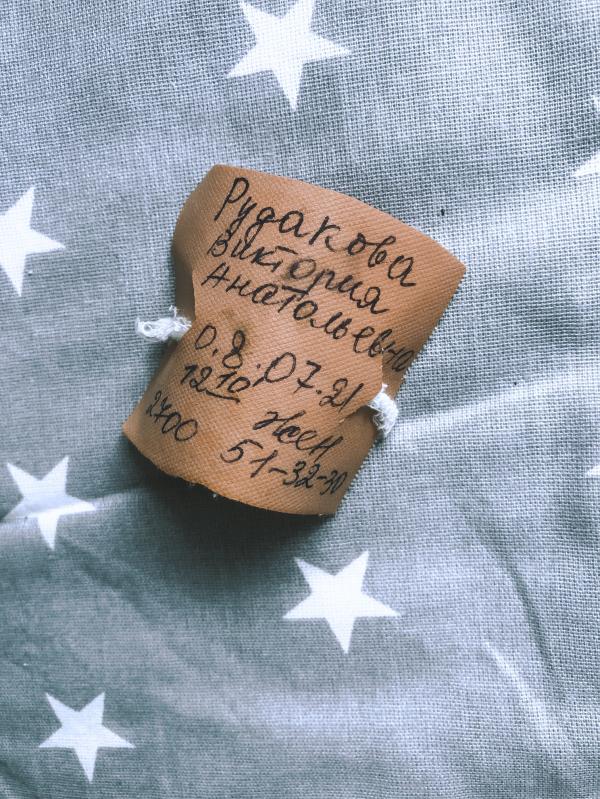 Рудакова
Виктория
Анатольевна
0.8.07.21
12 10 жен
2700 51-32-30